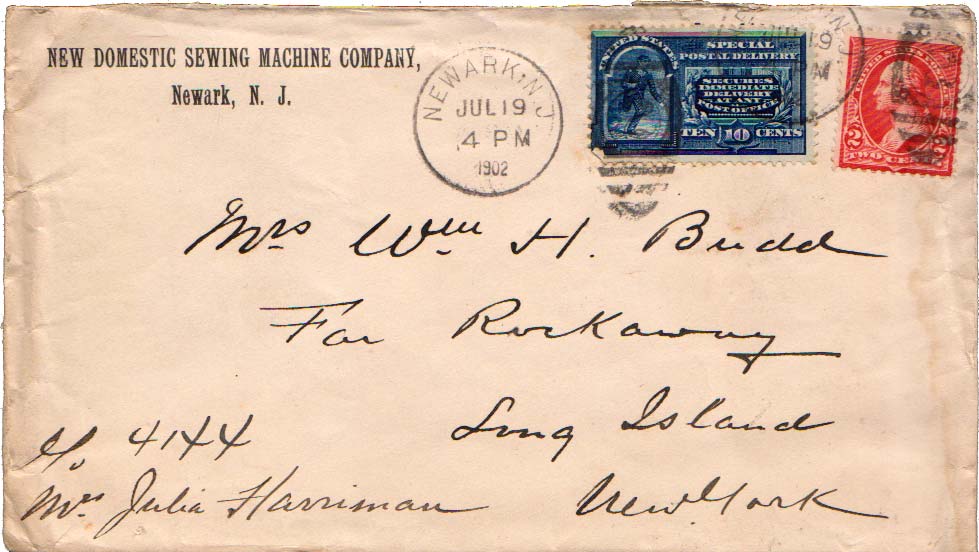 NEW DOMESTIC SEWING MACHINE COMPANY,
Newark, N. J.
NEWARK, N J
JUL 19
4 PM
1902
UNITED STATES
SPECIAL
POSTAL DELIVERY
SECURES
IMMEDIATE
DELIVERY
AT ANY
POST OFFICE
TEN 10 CENTS
19
M
2
TWO CE
Mrs Wm H. Budd
Far Rockaway
Long Island
New York
4144
Mrs Julia Harriman